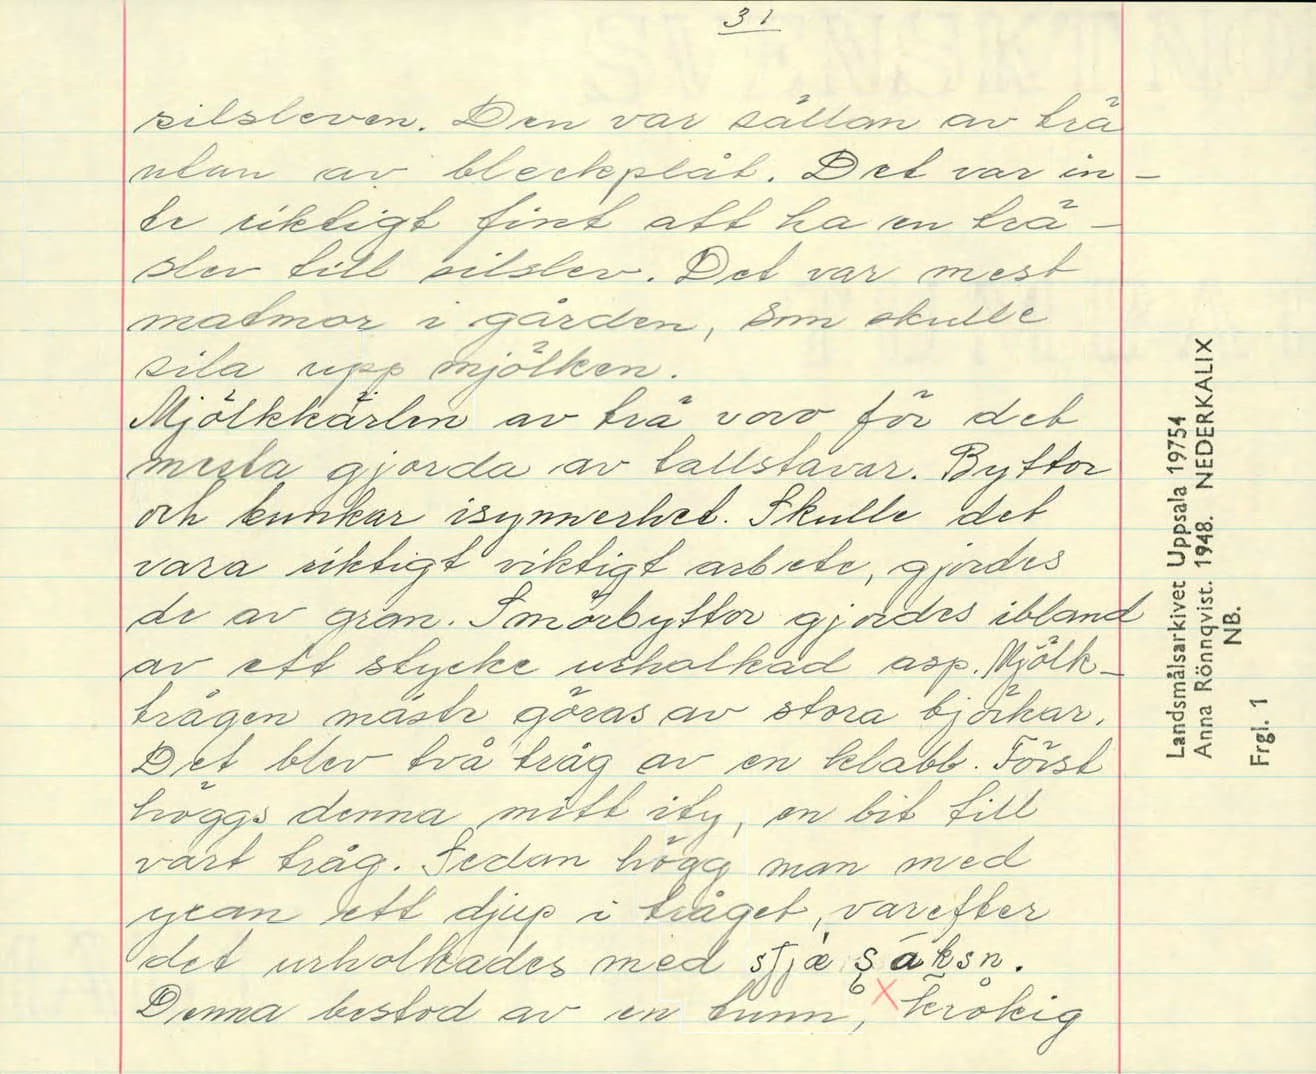 31
silsleven. Den var sällan av trä
utan av bleckplåt. Det var in-
te riktigt fint att ha en trä-
slev till silslev. Det var mest
matmor i gården, som skulle
sila upp mjölken.
Mjölkkärlen av trä voro för det
mesta gjorda av tallstavar. Byttor
och kunkar isynnerhet. Skulle det
vara riktigt viktigt arbete, gjordes
de av gran. Smörbyttor gjordes ibland
av ett stycke urholkad asp. Mjölk-
trågen måste göras av stora björkar.
Det blev två tråg av en klabb. Först
höggs denna mitt itu, en bit till
vart tråg. Sedan högg man med
yxan ett djup i tråget, varefter
det urholkades med
Denna bestod av en tunn, krokig
Landsmålsarkivet Uppsala 19754
Anna Rönnqvist. 1948. NEDERKALIX
NB.
Frgl. 1